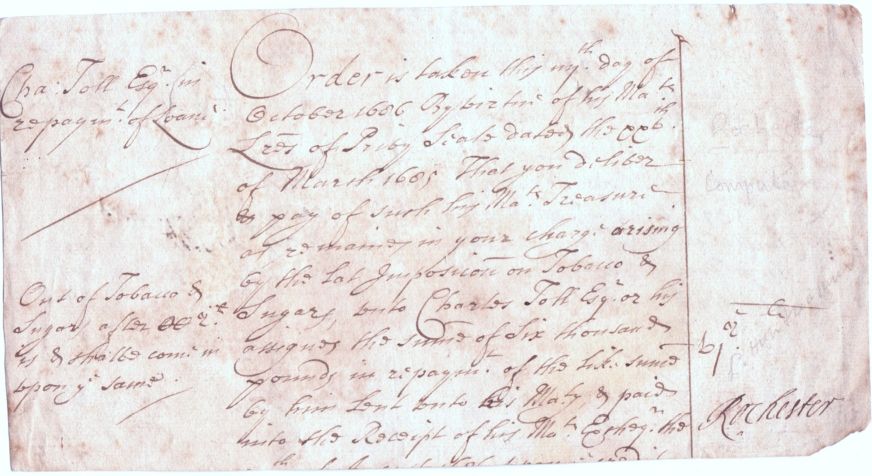 Cha: Toll Esqr. in
repaymt. of Loane
Out of Tobacco &
Sugars after
is & shalbe come in
upon ye same.
Order is taken this day of
October 1686 By virtue of his Mats
Lres of Privy Seale dated the xxvth
of March 1685 That you deliver
& pay of such his Mats Treasure
as remaines in your charge arising
by the lat Imposicon on Tobacco &
Sugars, unto Charles Toll Esqr. or his
assignes the summe of Six thousand
pounds in repaymt. of the like summe
by him Lent unto his Maty & paid
into the Receipt of his Mats Excheqr. the
Rochester